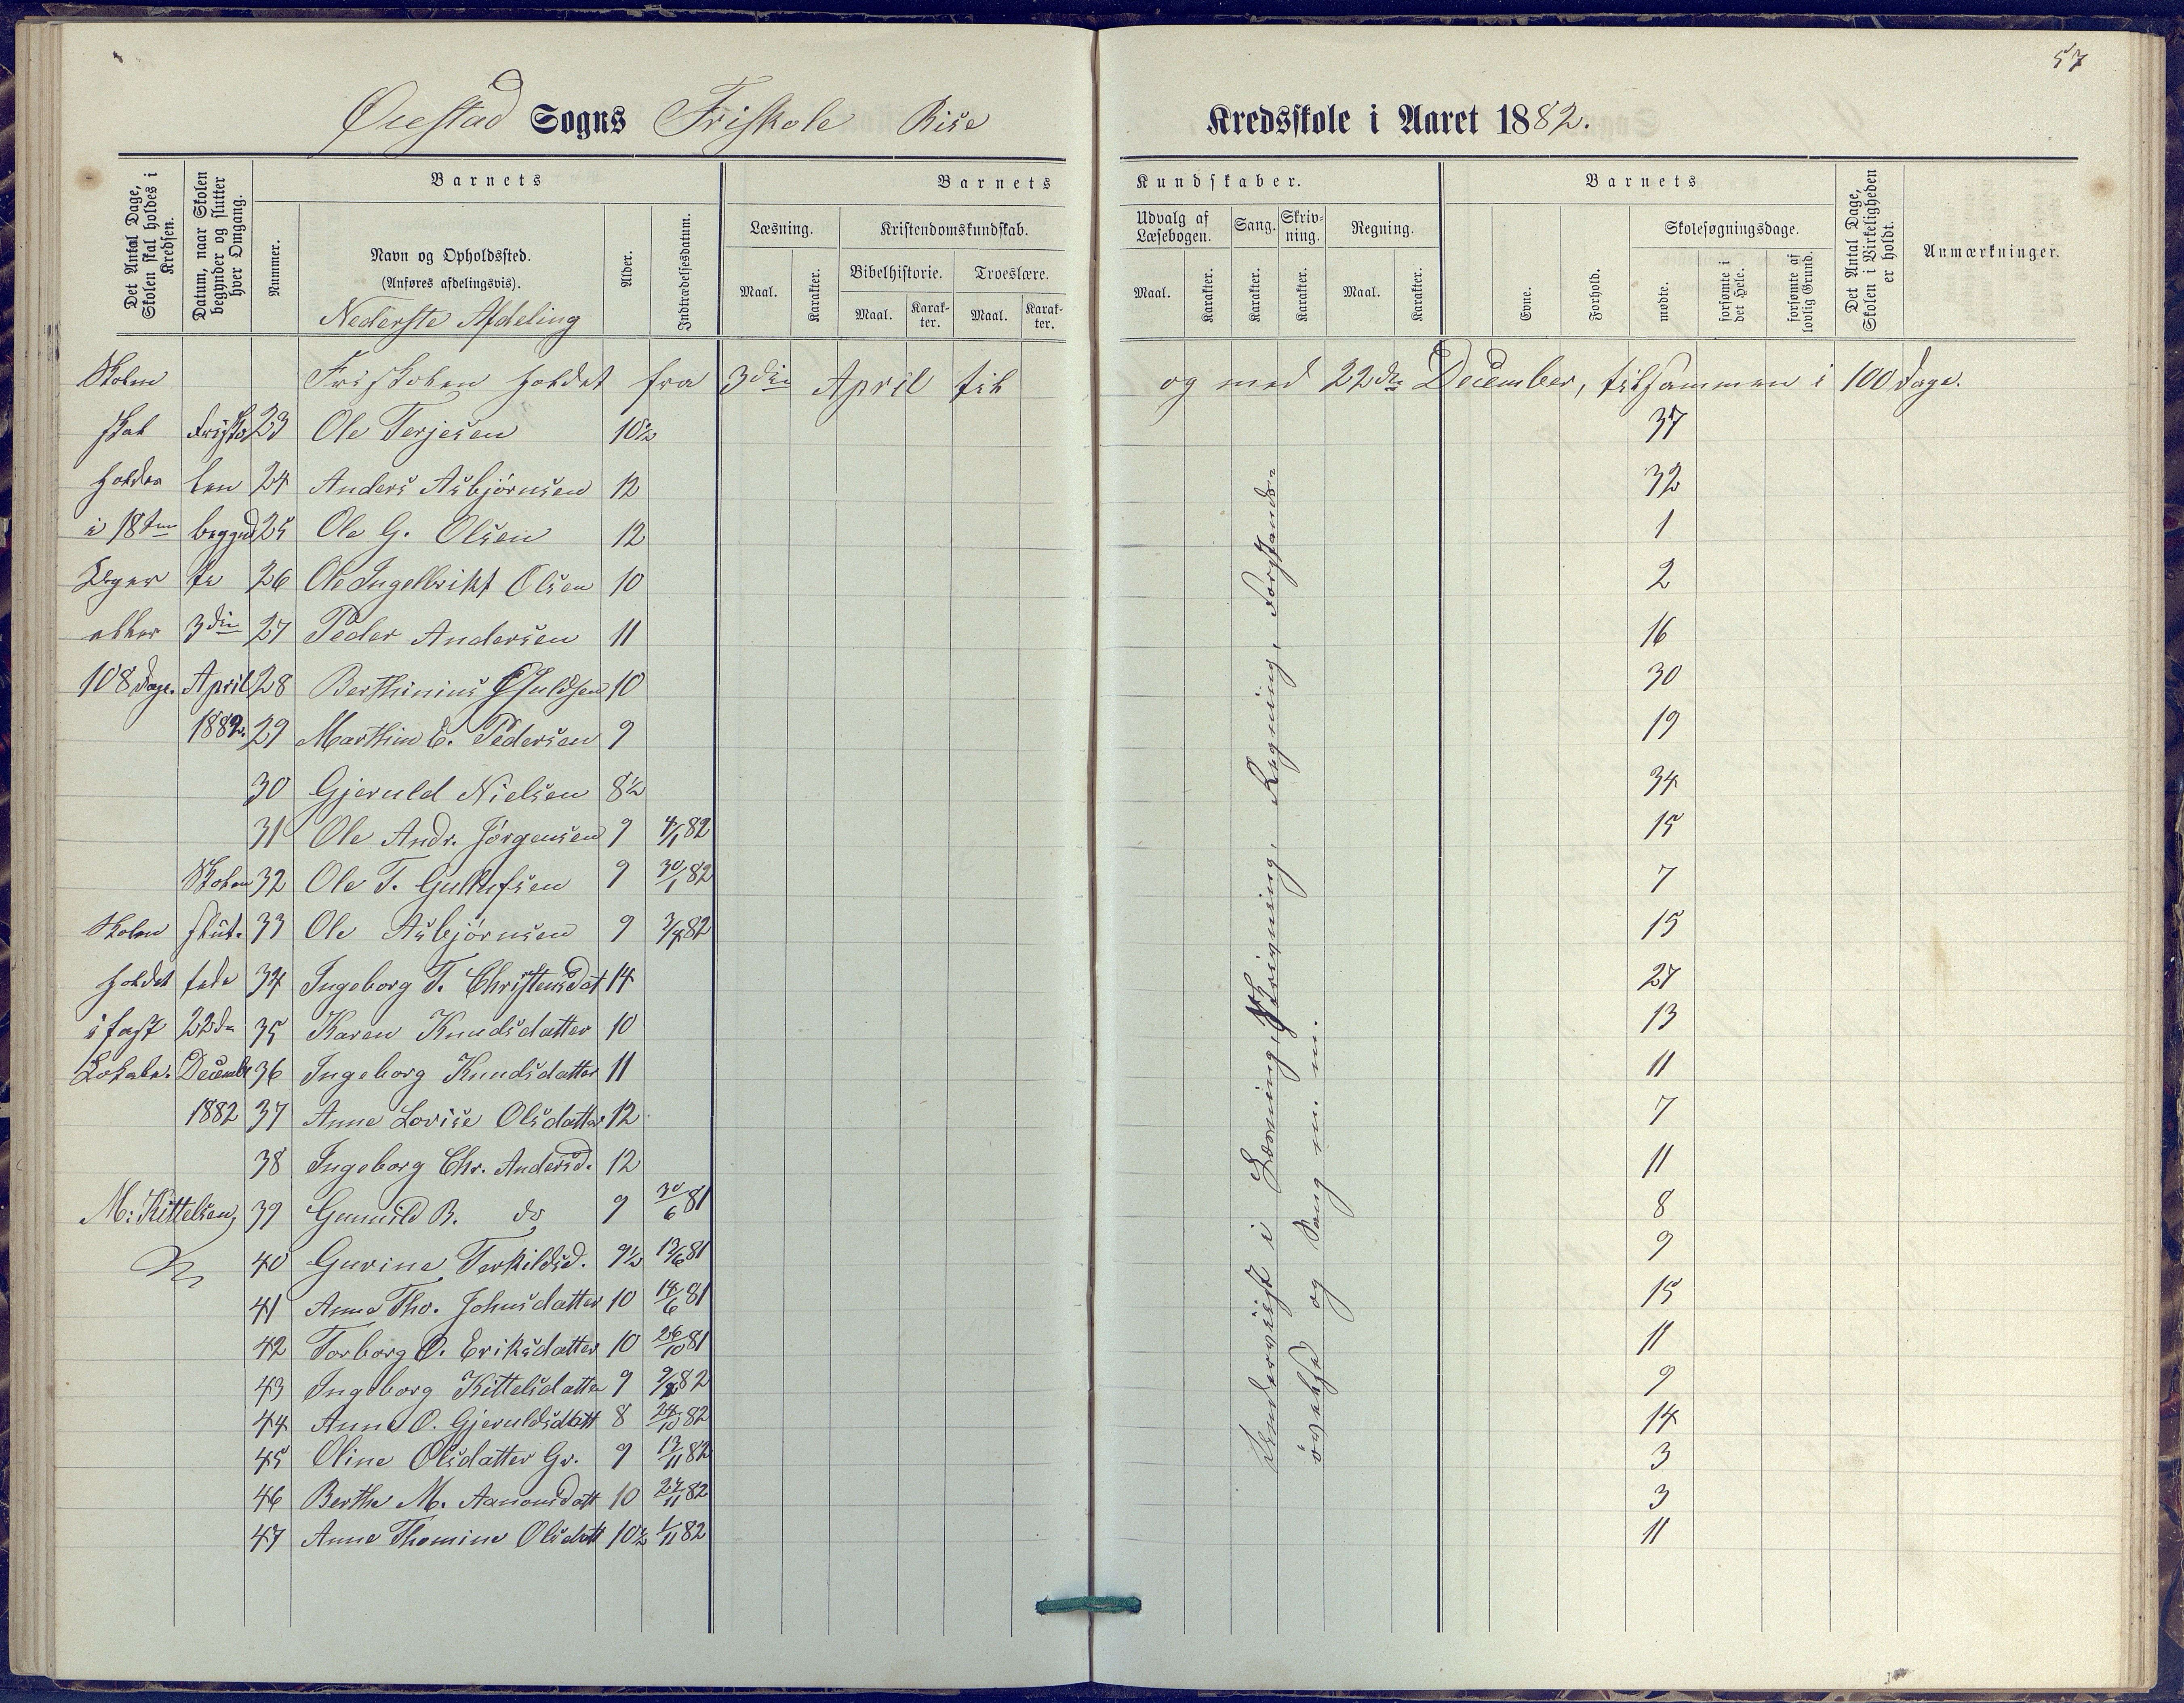 57
Øiestad Sogns Friskole Rise Kredsskole i Aaret 1882.
Det Antal Dage, Skolen skal holdes i Kredsen.
Datum, naar Skolen begynder og slutter hver Omgang.
Barnets
Nummer.
Navn og Opholdssted.
(Anføres afdelingsvis).
Nederste Afdeling
Alder.
Indtrædelsesdatum.
Barnets Kundskaber.
Læsning.
Maal.
Karakter.
Kristendomskundskab.
Bibelhistorie.
Maal.
Karakter.
Troeslære.
Maal.
Karakter.
Udvalg af Læsebogen.
Maal.
Karakter.
Sang.
Karakter.
Skrivning.
Karakter.
Regning.
Maal.
Karakter.
Barnets
Evne.
Forhold.
Skolesøgningsdage.
mødte.
forsømte i det Hele.
forsømte af lovlig Grund.
Det Antal Dage, Skolen i Virkeligheden er holdt.
Anmærkninger.
Skolen Friskolen holdet fra 3die April til og med 22de December, tilsammen i 100 Dage.
skal Frisko 23 Ole Terjesen 10½ 37
holdes len 24 Anders Asbjørnsen 12 32
i 18ten begynd 25 Ole G. Olsen 12 1
Uger te 26 Ole Ingelbrikt Olsen 10 2
eller 3die 27 Peder Andersen 11 16
108 Dage. April 28 Berthinius 10 30
1882. 29 Marthin E. Pedersen 9 19
30 Gjeruld Nielsen 8½ 34
31 Ole Andr. Jørgensen 9 4/1 82 15
Skolen 32 Ole T. Gullufsen 9 30/1 82 7
Skolen slut. 33 Ole Asbjørnsen 9 3/4 82 15
holdet tede 34 Ingeborg T. Christensdat 14 27
i fast 22de 35 Karen Knudsdatter 10 13
Lokale. Decembr 36 Ingeborg Knudsdatter 11 11
1882 37 Anne Lovise Olsdatter 12 7
38 Ingeborg Chr. Andersd. 12 11
M: Kittelsen, 39 Gunnild B. do 9 30/6 81 8
40 Gurine Terkildsd. 9½ 13/6 81 9
41 Anne Tho. Johnsdatter 10 14/6 81 15
42 Torborg O. Eriksdatter 10 26/10 81 11
43 Ingeborg Kittelsdatter 9 82 9
44 Anne O. Gjeruldsdatt 8 24/10 82 14
45 Oline Olsdatter Gr. 9 13/11 82 3
46 Berthe M. Aanonsdatt 10 27/11 82 3
47 Anne Thomine Olsdatt 10½ 1/11 82 11
Underviist i Læsning, Skrivning, Regning, Forstands-
øvelse og Sang m. m.